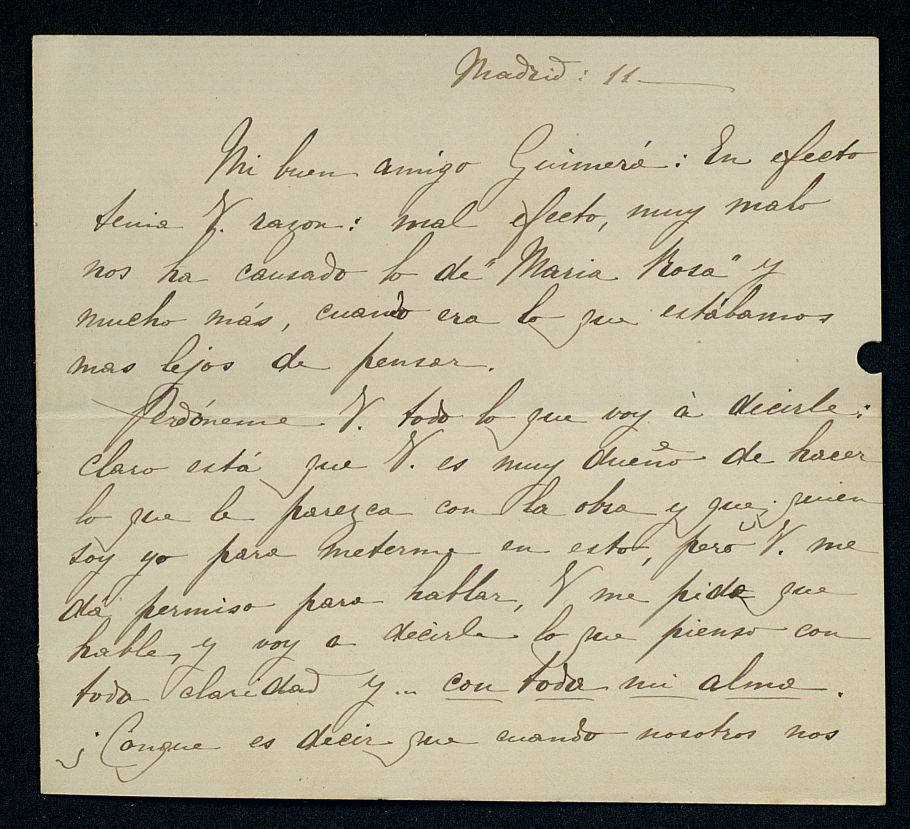 Madrid: 11
Mi buen amigo Guimerá: En efecto
tenia V. razon: mal efecto, muy malo
nos ha causado lo de "Maria Rosa" y
mucho más, cuando era lo que estábamos
mas lejos de pensar.
Perdóneme V. todo lo que voy à decirle:
claro está que V. es muy dueño de hacer
lo que le parezca con la obra y que, quien
soy yo para meterme en esto, pero V. me
dá permiso para hablar, V me pide que
hable, y voy a decirle lo que pienso con
toda claridad y... con toda mi alma.
¡Conque es decir que cuando nosotros nos